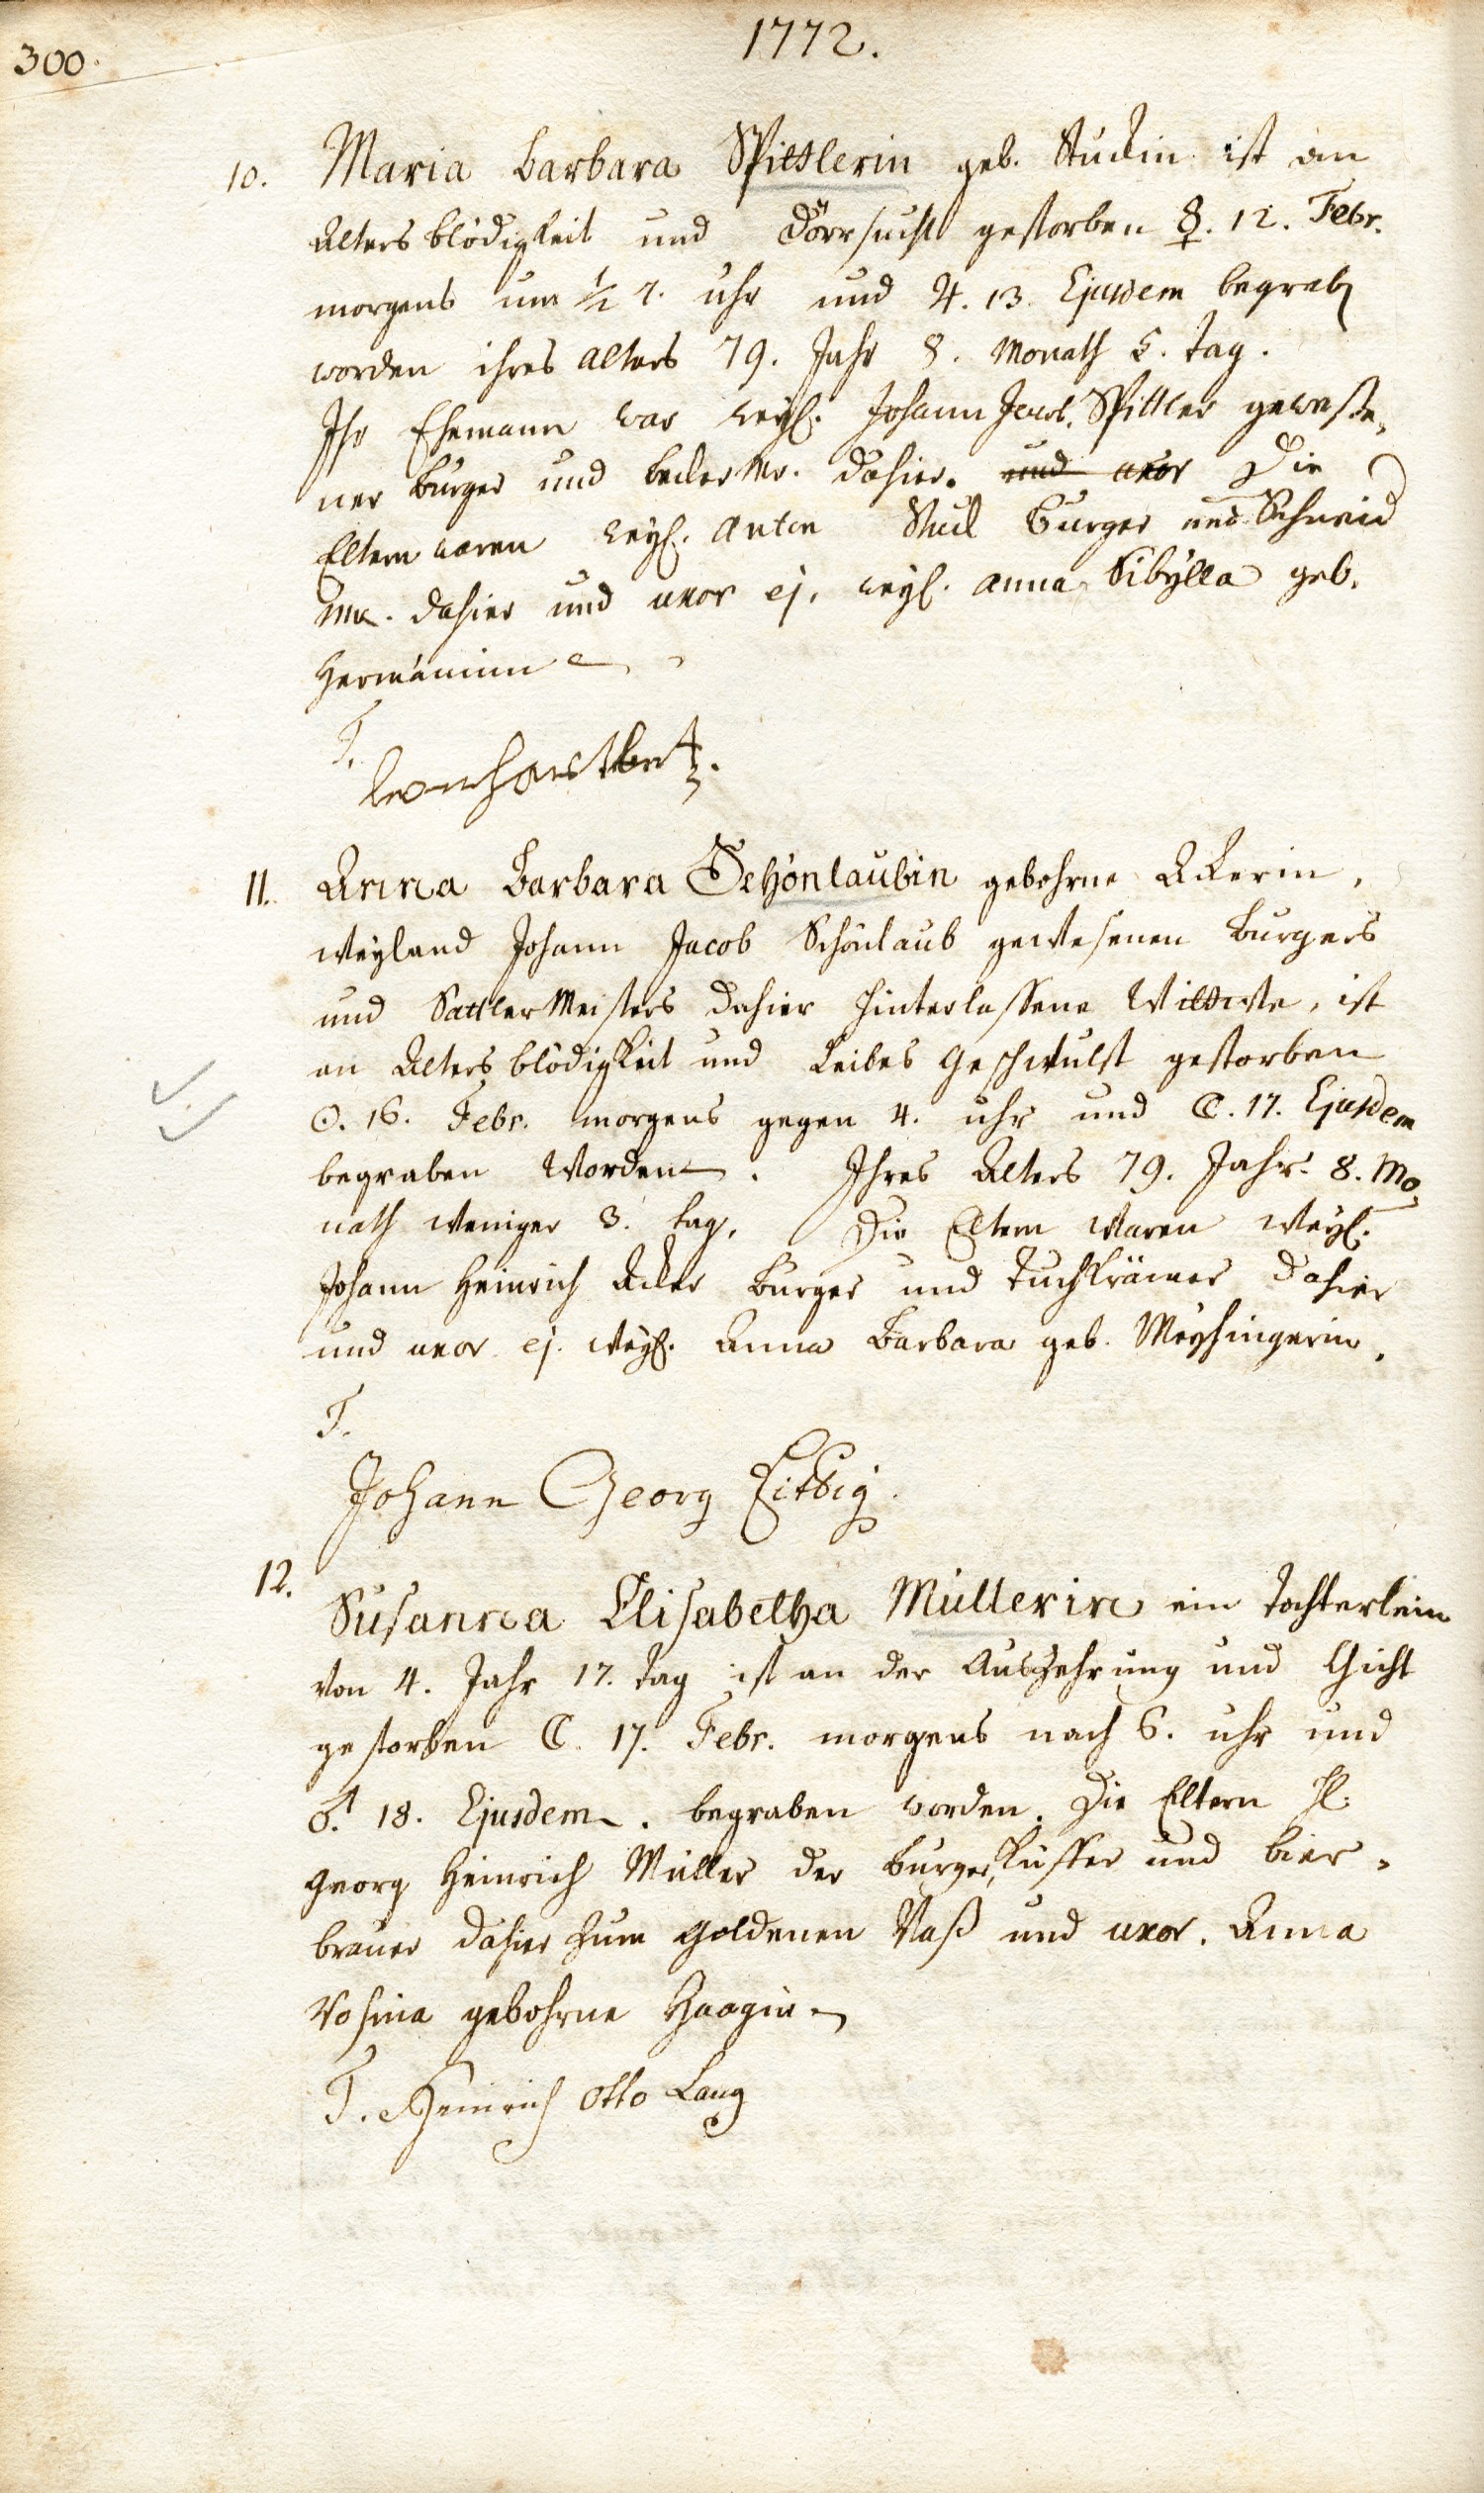 1772.
300.
10. Maria Barbara Spittlerin geb. Stuckin ist an
Alters blödigkeit und Dörrsucht gestorben ☿. 12. Febr.
morgens um ½ 7. uhr und ♃. 13. Ejusdem begraben
worden ihres alters 79. Jahr 8. Monath 5. tag.
Ihr Ehemann war weyl. Johann Jacob Spittler geweße-
ner burger und becker Mr. dahier. und uxor Die
Eltern waren weyl. Anton Stuck Burger und Schneid
Mr. dahier und uxor ej. weyl. Anna Sibÿlla geb.
Hermännin
T.
11. Anna Barbara Schönlaubin gebohrne Ackerin,
weyland Johann Jacob Schönlaub gewesenen Burgers
und Sattler Meisters dahier hinterlassene Wittwe, ist
an Alters blödigkeit und Leibes Geschwulst gestorben
☉. 16. Febr. morgens gegen 4. uhr und ☾. 17. Ejusdem
begraben worden. Ihres Alters 79. Jahr 8. Mo-
nath weniger 3. tag. Die Eltern waren weyl.
Johann Heinrich Acker Burger und Tuchkrämer dahier
und uxor ej. weyl. Anna Barbara geb. Meyhingerin.
T.
Johann Georg
12.
Susanna Elisabetha Müllerin ein Tochterlein
von 4. Jahr 17. tag ist an der Auszehrung und Gicht
gestorben ☾. 17. Febr. morgens nach 6. uhr und
♂. 18. Ejusdem. begraben worden. Die Eltern H.
Georg Heinrich Müller der burger, Küffer und bier-
brauer dahier zum goldenen Vaß und uxor. Anna
Rosina gebohrne Haagin
T. Heinrich Otto Lang